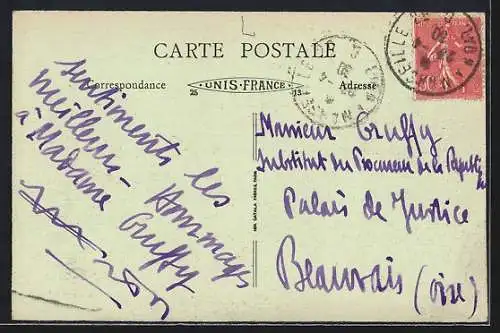 CARTE POSTALE
Correspondance
UNIS-FRANCE
Adresse
25
sentiments les
meilleurs - Hommages
à Madame Gruffy
Monsieur Gruffy
Substitut du Procureur de la Républiq
Palais de Justice
Beauvais (Oise)